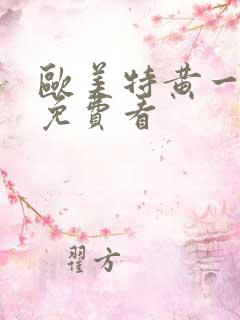 歐美特黄一
免費看
翟方